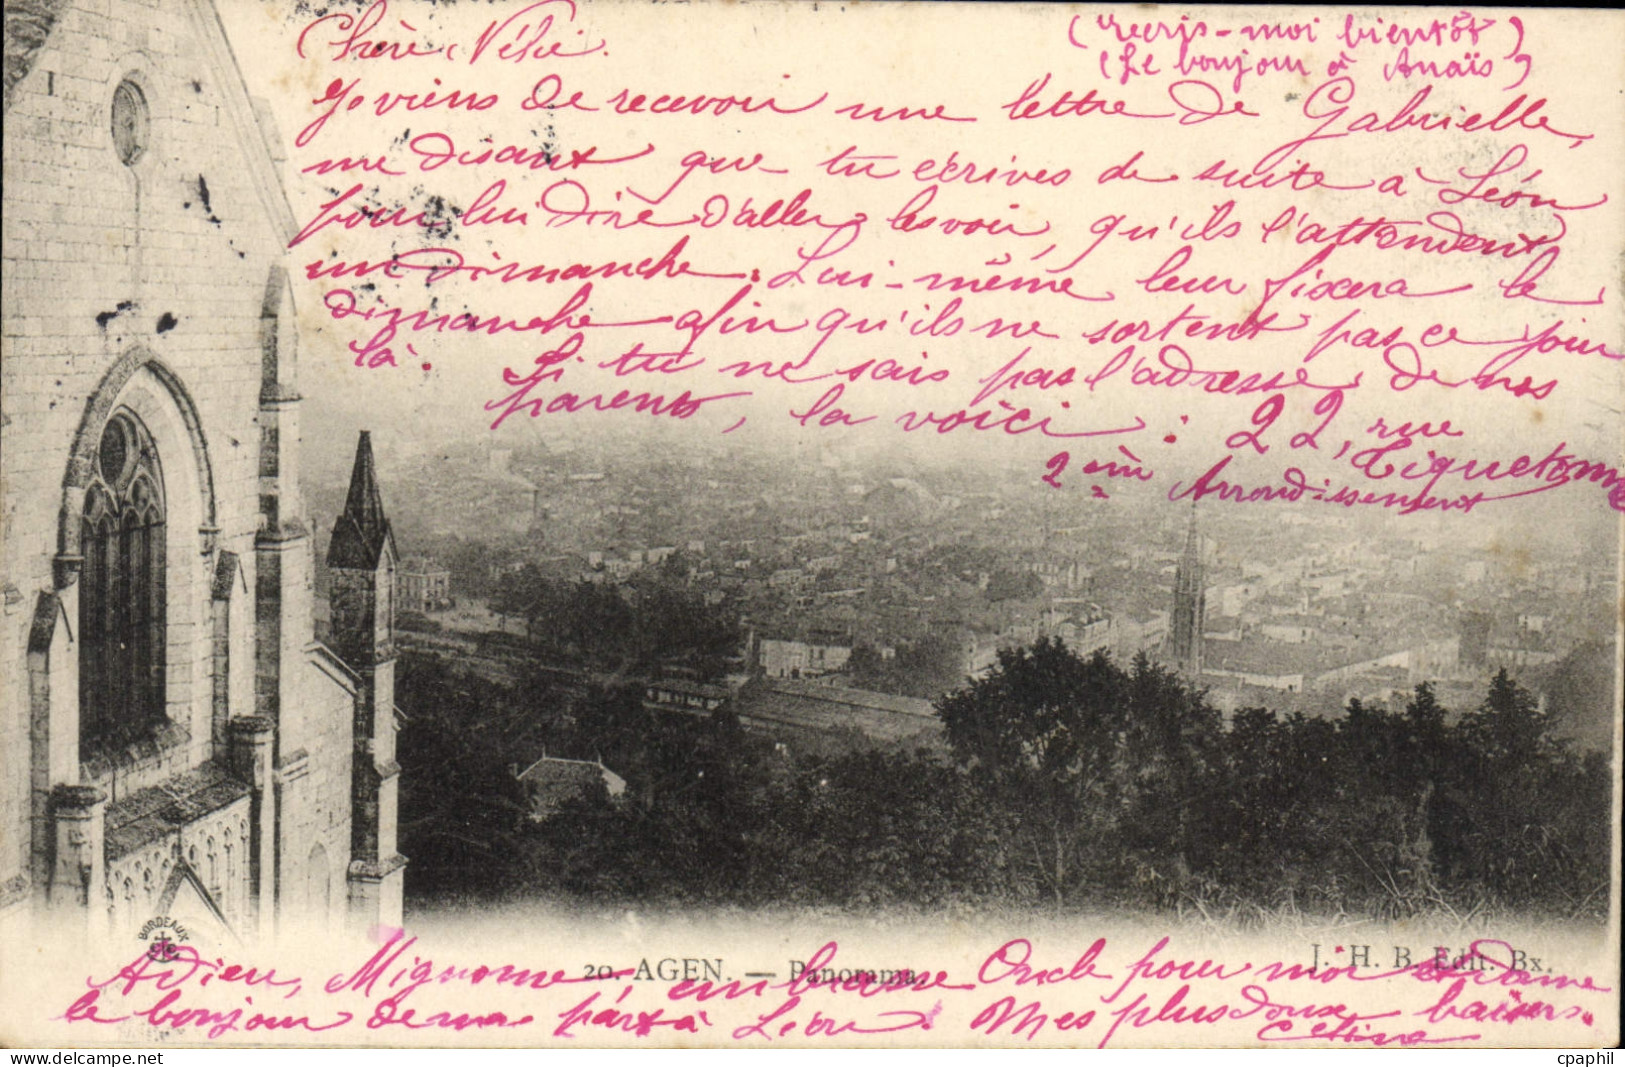 (recris-moi bientôt)
(Le bonjour à Anaïs)
Chère Nélie.
Je viens de recevoir une lettre de Gabrielle,
me disant que tu écrives de suite à Léon
pour lui dire d'aller les voir, qu'ils l'attendent
un dimanche. Lui-même leur fixera le
dimanche afin qu'ils ne sortent pas ce jour
là. Si tu ne sais pas l'adresse de nos
parents, la voici : 22, rue
Tiquetonne
2ème Arrondissement
BORDEAUX
20. AGEN. — Panorama.
J. H. B. Edit. Bx.
Adieu, Mignonne, embrasse Oncle pour moi et donne
le bonjour de ma part à Léon. Mes plus doux baisers.
Céline
cpaphil